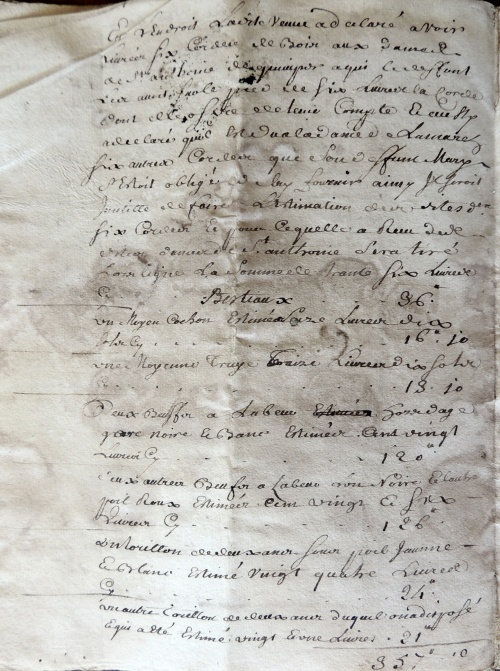 Cy Vendroit Ladite Veuve a declaré avoir
Livréé six Cordes de Bois aux Dames
de St Anthoine de quimper a qui le deffunt
Les avoit le prix de six Livres La Corde
dont elle offre de tenir Compte Et aussy
a declaré quil Est du a la dame de Lancarë
six autres Cordes que son deffunt Mary
S'Estoit obligé de luy fournir ainsy Il seroit
Inutille de faire L'Estimation
six Cordes et pour Ce quelle a Reçu de
dames de St anthoine sera tiré
hors Ligne La Somme de trante six Livres
Cy Bestiaux 36
un Moyen Cochon Estimé saize Livres dix
sols Cy 16 10
une Moyenne Truye Traize Livres dix sols
C 13 10
Deux Buffs a Labeur sous dage
noire Et Blanc Estimés Cent vingt
Livres Cy 120
deux autres Beufs a Labeur Lun Noire Et Lautre
poil Roux Estimés Cent vingt Et six
Livres Cy 126
un touillon de deux ans sous poil Jaune
Et Blanc Estimé Vingt quatre Livres
Cy 24
un autre touillon de deux ans duquel on a disposé
Et qui a Eté Estimé vingt Et une Livres 21
35 10